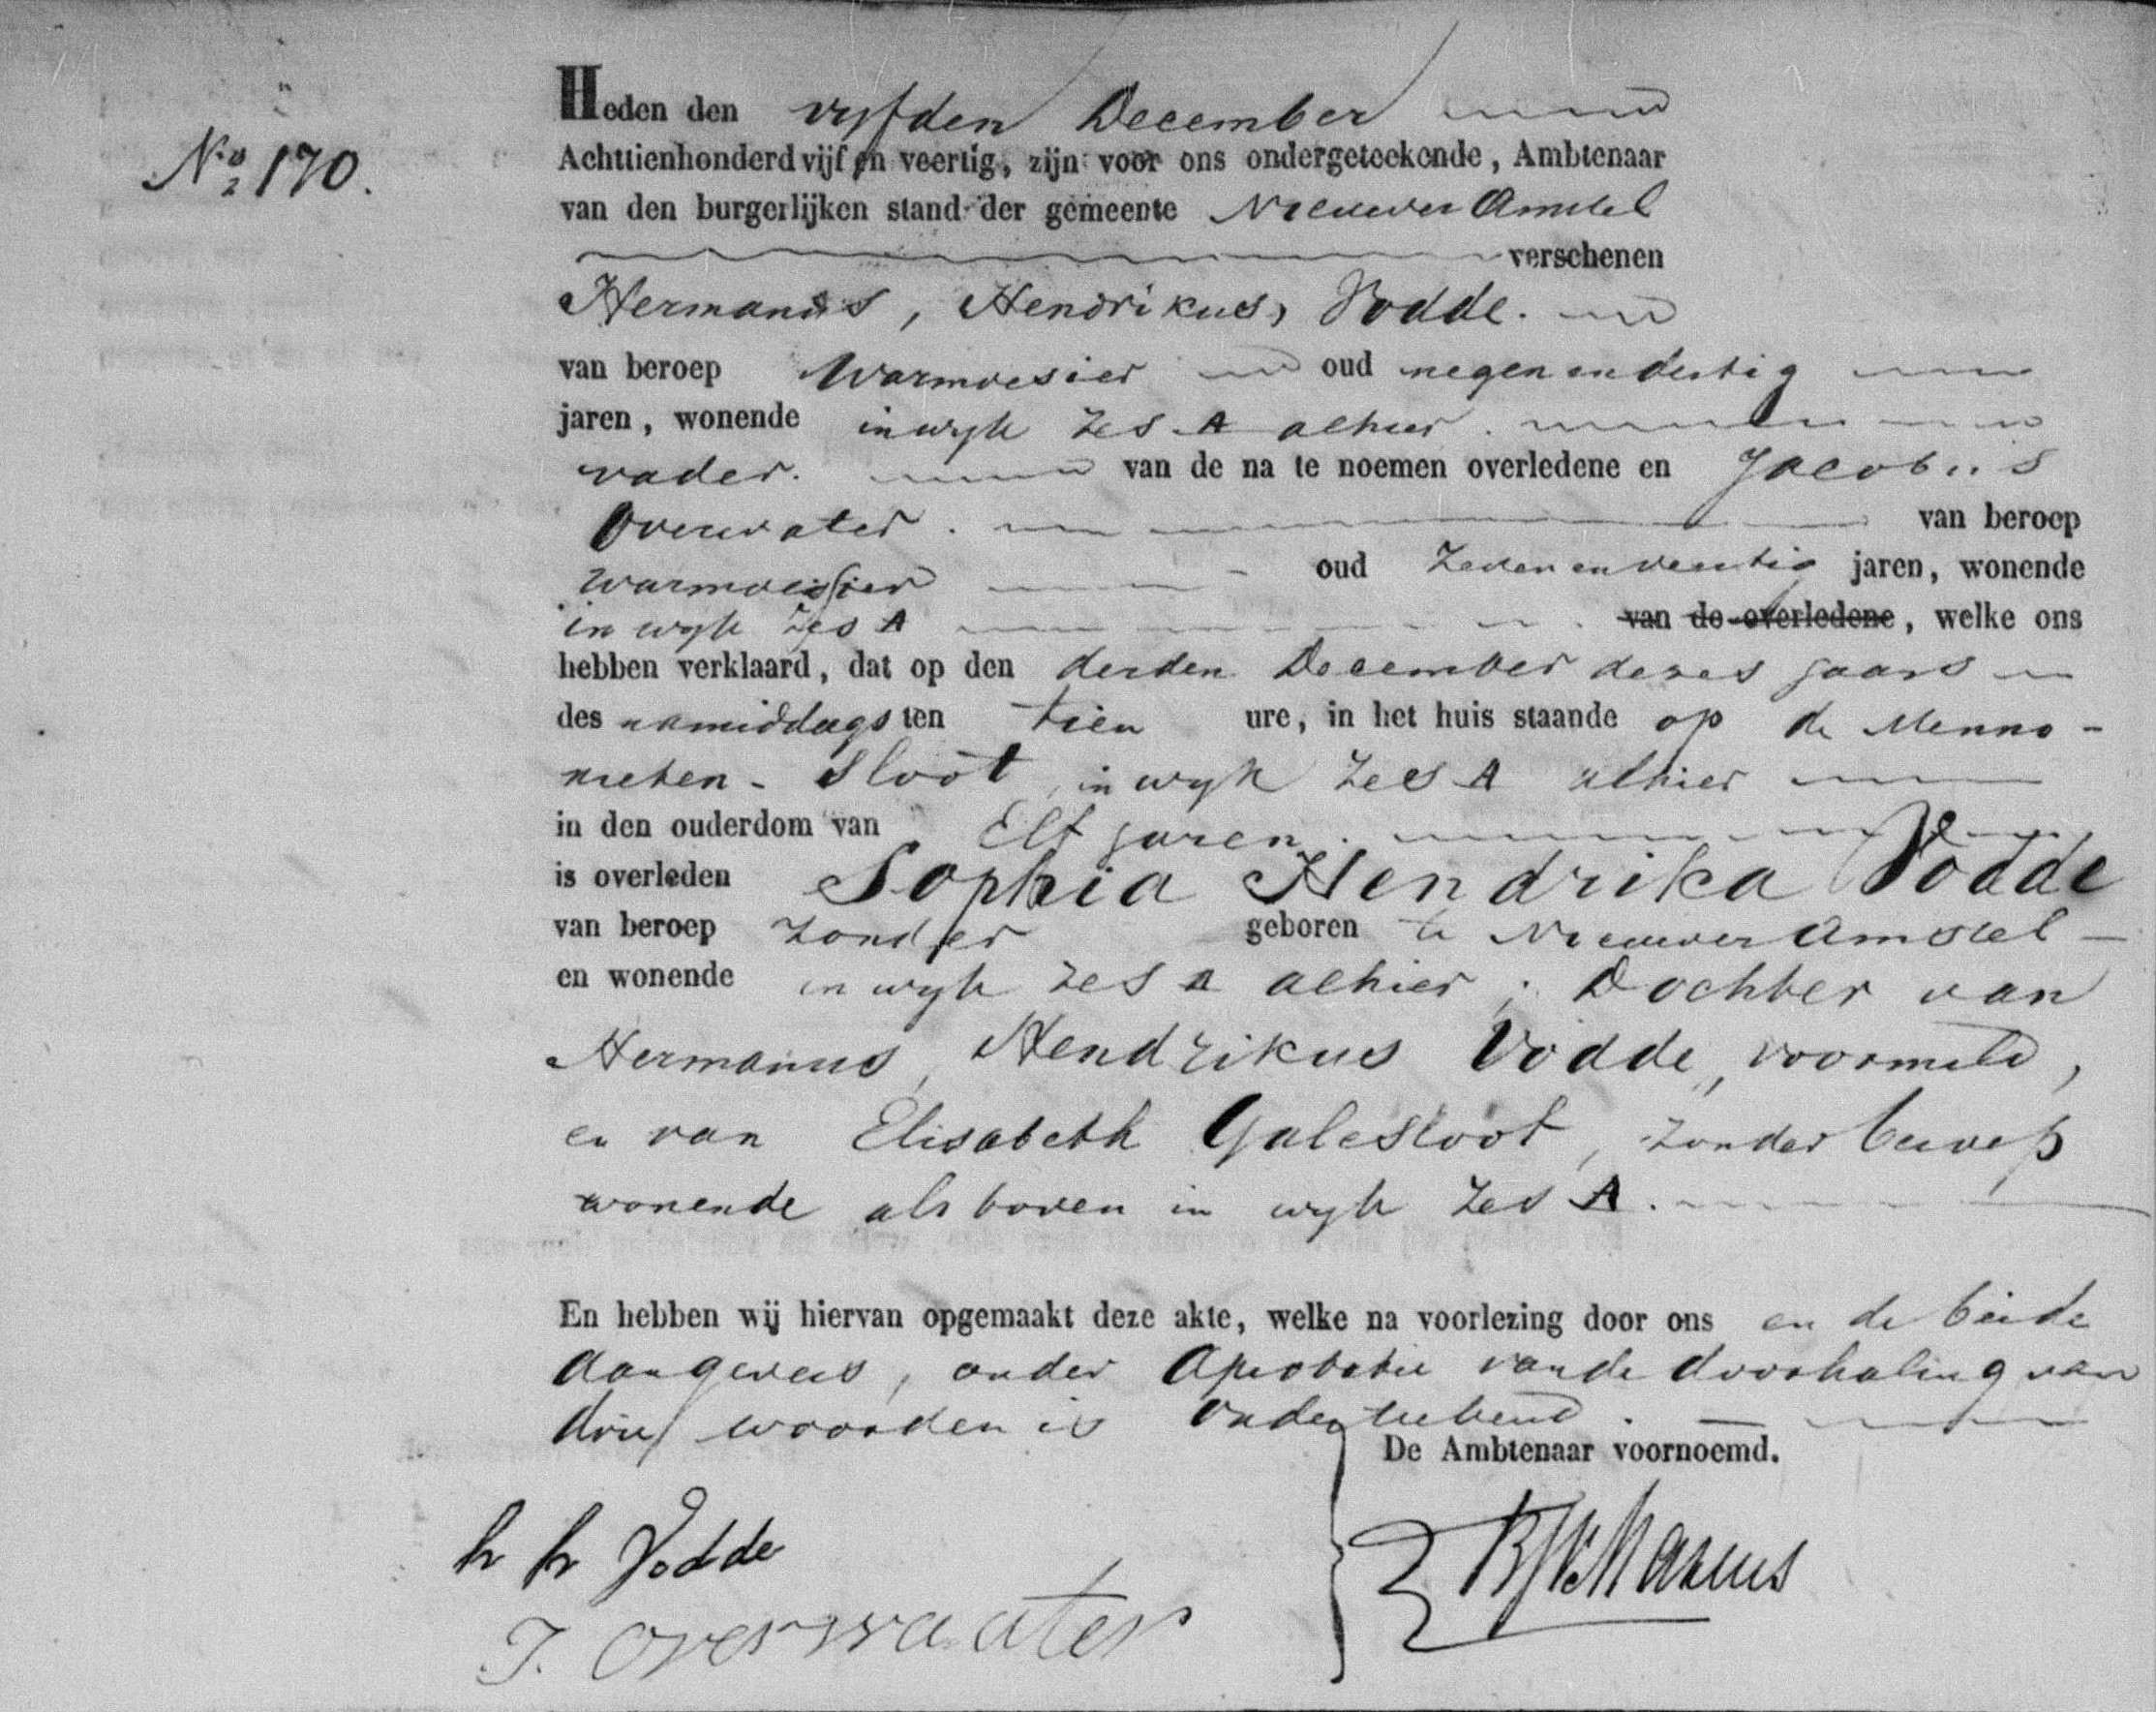 No 170.
Heden den vyfden December
Achttienhonderd vijf en veertig, zijn voor ons ondergeteekende, Ambtenaar
van den burgerlijken stand der gemeente Nieuwer Amstel
verschenen
Hermanus, Hendrikus, Vodde.
van beroep Warmoesier oud negenendertig
jaren, wonende in wyk zes A alhier.
vader. van de na te noemen overledene en Jacobus
Overwater. van beroep
Warmoesier oud zevenenveertig jaren, wonende
in wyk zes A van de overledene, welke ons
hebben verklaard, dat op den derden December dezes jaars
des namiddags ten tien ure, in het huis staande op de Menno-
nieten-Sloot, in wyk zes A alhier
in den ouderdom van Elf jaren.
is overleden Sophia Hendrika Vodde
van beroep zonder geboren te Nieuwer Amstel
en wonende in wyk zes A alhier; Dochter van
Hermanus, Hendrikus Vodde, voormeld,
en van Elisabeth Galesloot, zonder beroep
wonende als boven in wyk zes A.
En hebben wij hiervan opgemaakt deze akte, welke na voorlezing door ons en de beide
aangevers, onder Aprobatie van de doorhaling van
drie woorden is onderteekend.
De Ambtenaar voornoemd.
h h Vodde
J. Overwaater